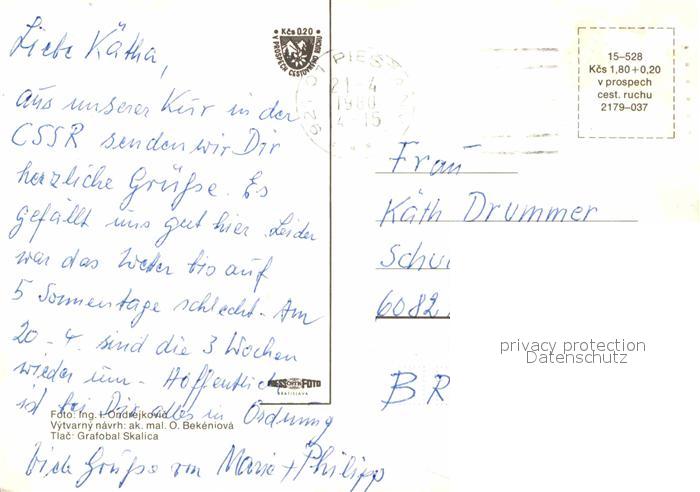 Liebe Kätha,
aus unserer Kur in der
CSSR senden wir Dir
herzliche Grüße. Es
gefällt uns gut hier. Leider
war das Wetter bis auf
5 Sonnentage schlecht. Am
20. 4. sind die 3 Wochen
wieder um. Hoffentlich
ist bei Dir alles in Ordnung
Viele Grüße von Maria + Philipp
Kčs 0.20
V PROSPECH CESTOVNÉHO RUCHU
21.-4
1980
15–528
Kčs 1,80+0,20
v prospech
cest. ruchu
2179–037
Frau
Käth Drummer
6082
BR
privacy protection
Datenschutz
PRESSFOTO
BRATISLAVA
Foto: Ing. I. Ondrejkovič
Výtvarný návrh: ak. mal. O. Bekéniová
Tlač: Grafobal Skalica